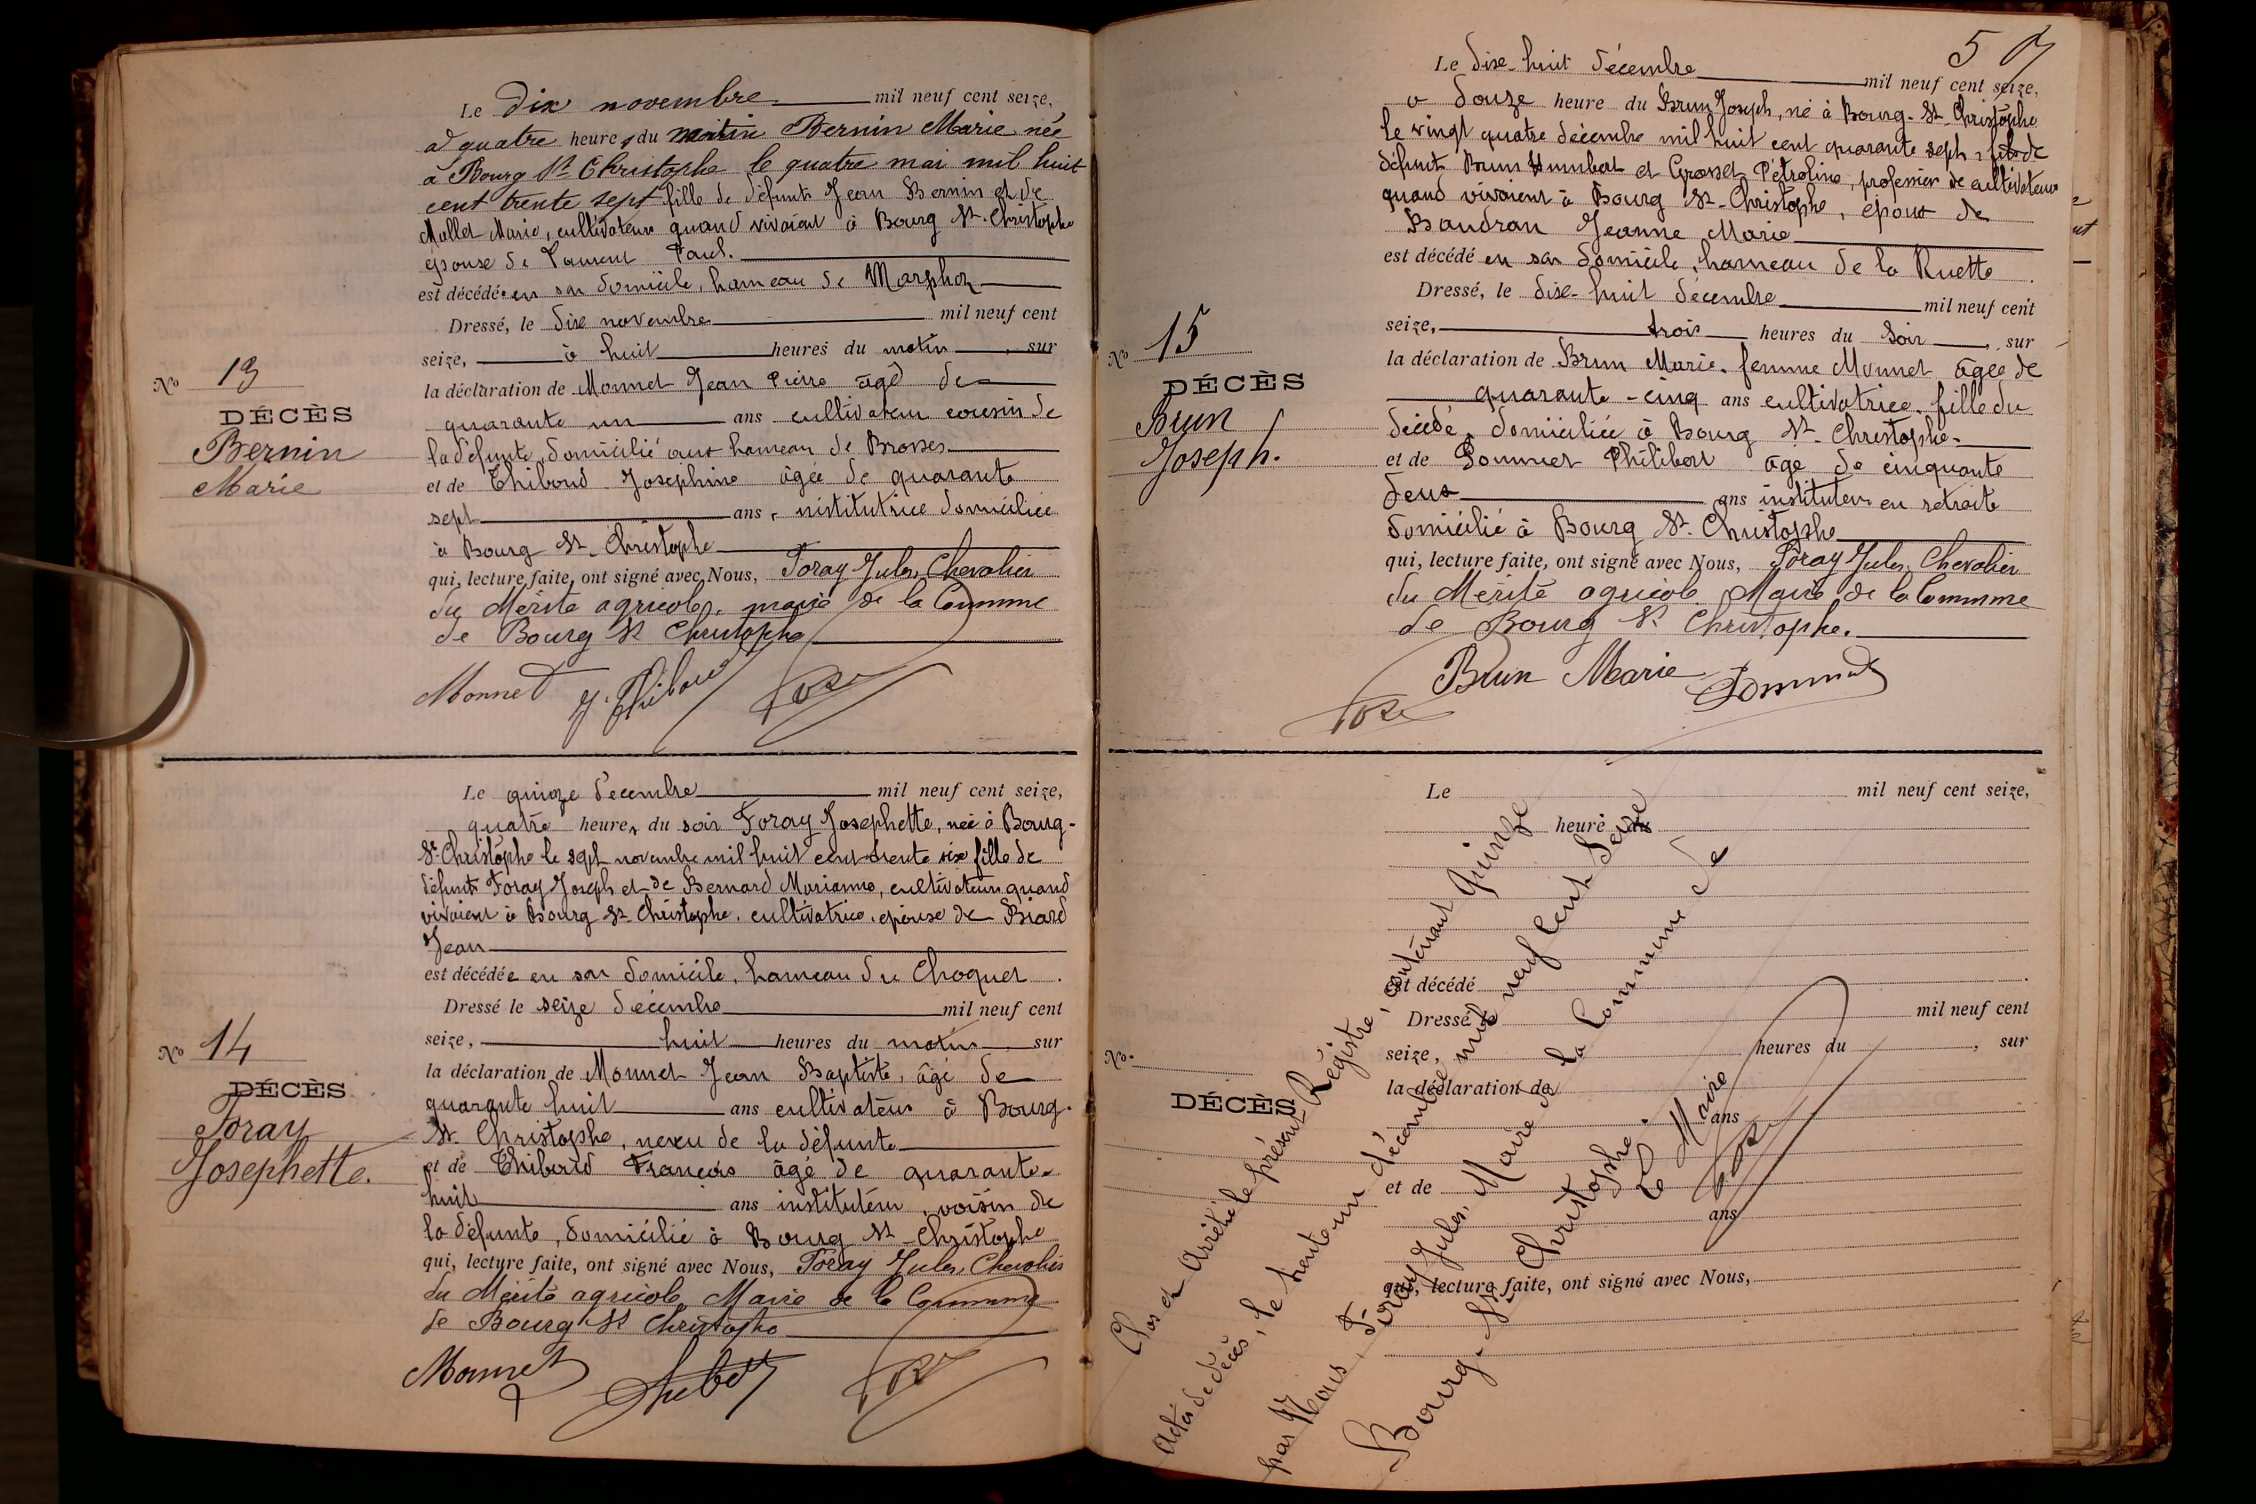 Le dix novembre mil neuf cent seize,
à quatre heures du matin Bernin Marie née
à Bourg St Christophe le quatre mai mil huit
cent trente sept fille de défunts Jean Bernin et de
Mollet Marie, cultivateurs quand vivaient à Bourg St-Christophe
épouse de Laurent Paul.
est décédée en son domicile, hameau de Marphoz
Dressé, le dix novembre mil neuf cent
seize, à huit heures du matin, sur
la déclaration de Monnet Jean Pierre âgé de
quarante un ans cultivateur cousin de
la défunte, domicilié aux hameau de Brosses
et de Thiboud Joséphine âgée de quarante
sept ans, institutrice domiciliée
à Bourg St-Christophe
qui, lecture faite, ont signé avec Nous, Foray Jules, Chevalier
du Mérite agricole, maire de la Commune
de Bourg St Christophe
Monnet J. Thiboud
No 13
DÉCÈS
Bernin
Marie
Le quinze décembre mil neuf cent seize,
quatre heures du soir Foray Josephette, née à Bourg-
St-Christophe le sept novembre mil huit cent trente six fille de
défunts Foray Joseph et de Bernard Marianne, cultivateurs quand
vivaient à Bourg St-Christophe, cultivatrice, épouse de Biard
Jean
est décédée en son domicile, hameau du Choquet.
Dressé le seize décembre mil neuf cent
seize, huit heures du matin, sur
la déclaration de Monnet Jean Baptiste, âgé de
quarante huit ans cultivateur à Bourg-
St-Christophe, neveu de la défunte
et de Thiboud François âgé de quarante-
huit ans instituteur, voisin de
la défunte, domicilié à Bourg St-Christophe
qui, lecture faite, ont signé avec Nous, Foray Jules, Chevalier
du Mérite agricole, Maire de la Commune
de Bourg St Christophe
Monnet
No 14
DÉCÈS
Foray
Josephette.
Le dix-huit décembre mil neuf cent seize,
à douze heure du Brun Joseph, né à Bourg-St-Christophe
le vingt quatre décembre mil huit cent quarante sept, fils de
défunt Brun Humbert et Grosset Pétroline, profession de cultivateurs
quand vivaient à Bourg St-Christophe, époux de
Baudran Jeanne Marie
est décédé en son domicile, hameau de la Ruette.
Dressé, le dix-huit décembre mil neuf cent
seize, trois heures du soir, sur
la déclaration de Brun Marie, femme Monnet âgée de
quarante-cinq ans cultivatrice, fille du
décédé, domiciliée à Bourg St-Christophe-
et de Pommet Philibert âgé de cinquante
deux ans instituteur en retraite
domicilié à Bourg St-Christophe
qui, lecture faite, ont signé avec Nous, Foray Jules, Chevalier
du Mérite agricole, Maire de la Commune
de Bourg St Christophe.
Brun Marie
No 15
DÉCÈS
Brun
Joseph.
Le mil neuf cent seize,
heure du
est décédé
Dressé, le mil neuf cent
seize, heures du, sur
la déclaration de
ans
et de
ans
qui, lecture faite, ont signé avec Nous,
No.
DÉCÈS
Clos et Arrêté le présent Régistre, contenant Quinze
actes de décès, le trente un décembre mil neuf Cent Seize
par Nous, Foray Jules, Maire de la Commune de
Bourg-St-Christophe.
Le Maire